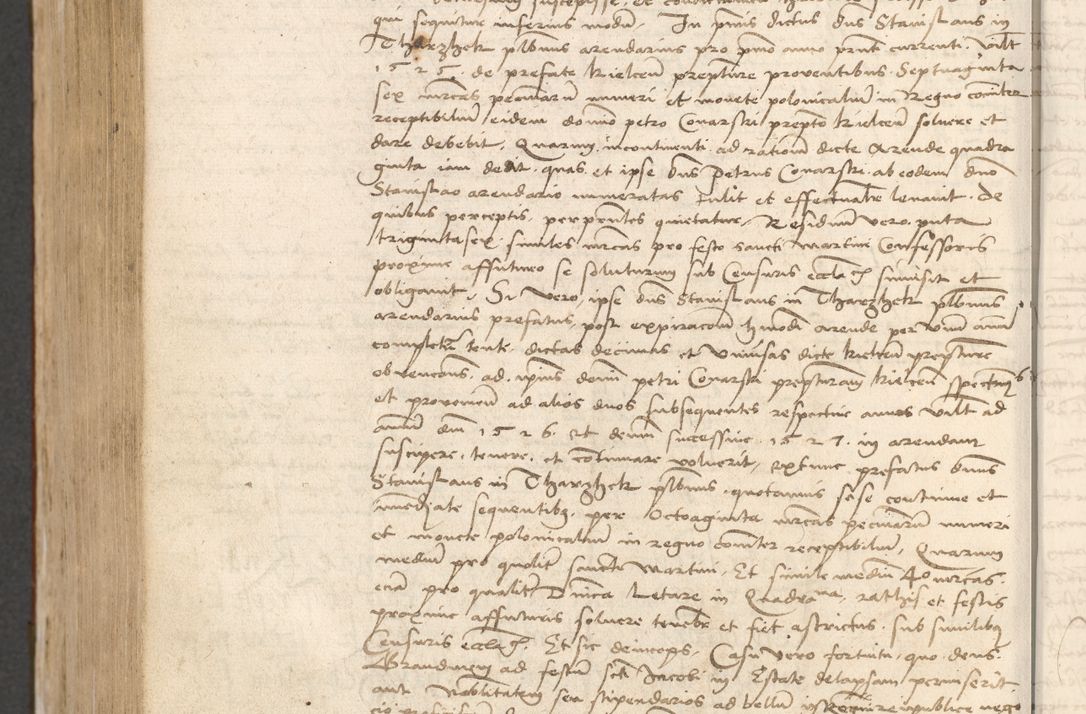 qui sequitur inferius modum. In primis dictus dns Stanislaus in
Tharzhek plbnus arendarius pro pmo anno prnti currenti. Vilt
1525. de prefate kielcen prepture proventibus. Septuaginta
sex mrcas pecuniarū numeri et monete polonicaliū in Regno comiter
receptibiliū eidem domino petro Conarski prepto kielcen soluere et
dare debebit, Quarum incontinenti ad rationem dicte Arende quadra
ginta iam dedit. quas et ipse dns Petrus Conarski ab eodem dno
Stanislao arendario numeratas tulit et effectualr leuauit. De
quibus perceptis, per pntes quietatur, Residuum vero puta
triginta sex similes mrcas pro festo sancti Martini Confessoris
proxime affuturo se soluturum sub Censuris eccla submisit et
obligauit, Si Vero ipse dns Stanislaus in Tharzhek plbnus
arendarius prefatus, post expiracōm hmodi arende per Vnū annū
complete tente, dictas decimas et Vniūsas dicte kielcen prepture
obvencōns, ad ipius domini petri Conarski prepturam kielcen spectn
et provenien ad alios duos subsequentes respectiue annos Vilt ad
annū dni 1526. Et demū successiue 1527. in arendam
suscipere, tenere, et continuare voluerit, extunc prefatus dnus
Stanislaus in Tharzhek plbnus, quotannis sese continue et
immediate sequentibus, per Octoaginta mrcas pecuniarū numeri
et monete polonicaliū in regno comiter receptibiliū, Quarum
mediū pro quolit sancti Martini, Et simile mediū 40 mrcas.
eciā pro qualit Dnica Letare in Quadrana, rathis et festis
proxime affuturis soluere tenebr et fiet astrictus, sub similibus
Censuris eccla. Et sic deinceps, Casu vero fortuitu, quo deus.
Grandinem ad festū scti Jacobi in Estate delapsam permiserit
aut Nobilitatem seu stipendarios ad bellū reipublice nego